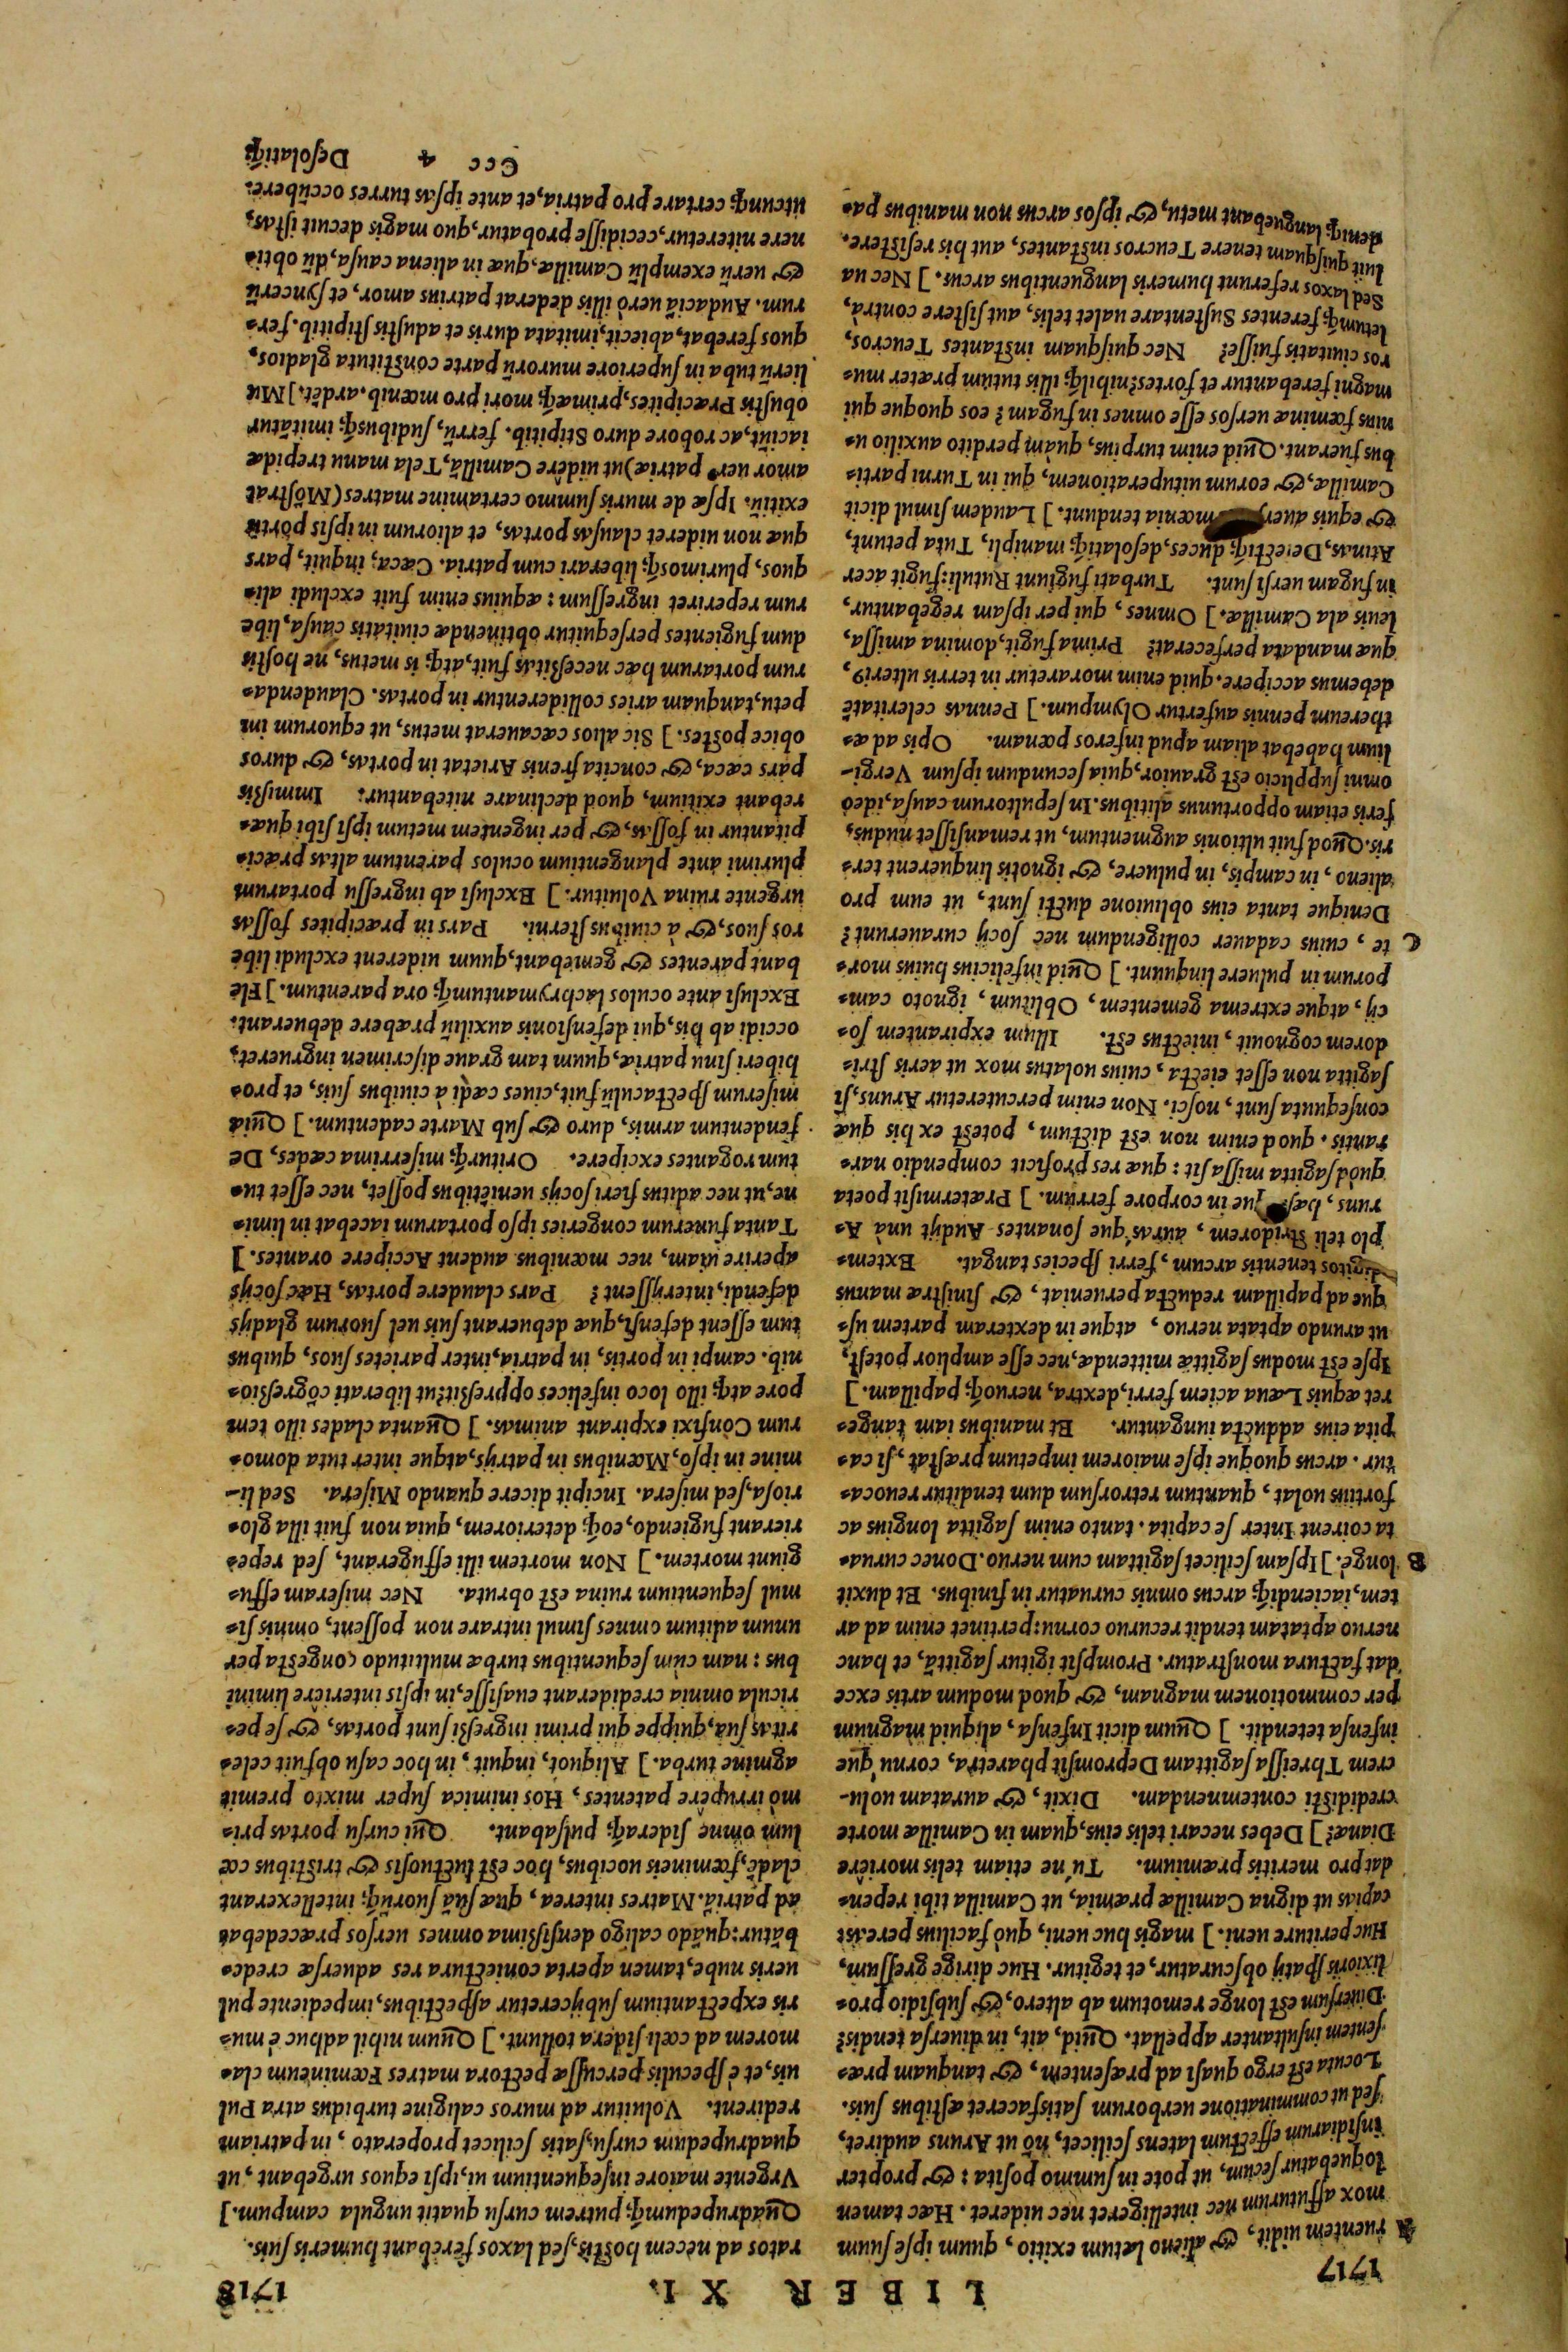 1717 LIBER XI. 1718
A ruentem uidit, & alieno lætum exitio, quum ipse suum
mox affuturum nec intelligeret nec uideret. Hæc tamen
loquebatur secum, ut pote in summo posita: & propter
insidiarum effectum latens scilicet, nō ut Aruns audiret,
sed ut comminatione uerborum satisfaceret æstibus suis.
Locuta est ergo quasi ad præsentem, & tanquam præ⸗
sentem insultanter appellat. Quid, ait, in diuersa tendis?
Diuersum est longe remotum ab altero, & subsidio pro⸗
lixioris spatij obscuratur, et tegitur. Huc dirige gressum,
Huc periture ueni.] magis huc ueni, quò facilius pereas:
capias ut digna Camillæ præmia, ut Camilla tibi repen⸗
dat pro meritis præmium. Tú ne etiam telis moriêre
Dianæ?] Debes necari telis eius, quam in Camillæ morte
credidisti contemnendam. Dixit, & auratam uolu-
crem Threissa sagittam Depromsit pharetra, cornu'que
infensa tetendit.] Quum dicit Infensa, aliquid magnum
per commotionem magnam, & quod modum artis exce
dat factura monstratur. Prompsit igitur sagittā, et hanc
neruo aptatam tendit recuruo cornu: pertinet enim ad ar
tem, iaciendiq; arcus omnis curuatur in finibus. Et duxit
B longè.] Ipsam scilicet sagittam cum neruo. Donec curua⸗
ta coirent Inter se capita. tanto enim sagitta longius ac
fortius uolat, quantum retrorsum dum tenditur reuoca⸗
tur. arcus quoque ipse maiorem impetum præstat, si ca⸗
pita eius adducta iungantur. Et manibus iam tange⸗
ret æquis Læua aciem ferri, dextra, neruoq; papillam.]
Ipse est modus sagittæ mittendæ, nec esse amplior potest,
ut arundo aptata neruo, atque in dexteram partem us⸗
que ad papillam reducta perueniat, & sinistræ manus
digitos tenentis arcum, ferri species tangat. Extem⸗
plo teli stridorem, auras'que sonantes Audijt unà A⸗
runs, hæsitque in corpore ferrum.] Prætermisit poeta
quòd sagitta missa sit: quæ res proficit compendio nar⸗
rantis. quod enim non est dictum, potest ex his quæ
consequuta sunt, nosci. Non enim percuteretur Aruns, si
sagitta non esset eiecta, cuius uolatus mox ut aeris stri⸗
dorem cognouit, iniectus est. Illum expirantem so⸗
cij, atque extrema gementem, Obliti, ignoto cam⸗
porum in puluere linquunt.] Quid infelicius huius mor⸗
C te, cuius cadauer colligendum nec socij curauerunt?
Denique tanta eius obliuione ducti sunt, ut eum pro
alieno, in campis, in puluere, & ignotis linquerent ter⸗
ris. Quod fuit ultionis augmentum, ut remansisset nudus,
feris etiam opportunus alitibus. In sepultorum causa, ideo
omni supplicio est grauior, quia secundum ipsum Vergi-
lium habebat aliam apud inferos pœnam. Opis ad æ⸗
thereum pennis aufertur Olympum.] Pennas celeritatē
debemus accipere. quid enim moraretur in terris ulteri9,
quæ mandata perfecerat? Prima fugit, domina amissa,
leuis ala Camillæ.] Omnes, qui per ipsam regebantur,
in fugam uersi sunt. Turbati fugiunt Rutuli: fugit acer
Atinas, Deiectíq; duces, desolatíq; manipli, Tuta petunt,
& equis auersi mœnia tendunt.] Laudem simul dicit
Camillæ, & eorum uituperationem, qui in Turni parti⸗
bus fuerant. Quid enim turpius, quàm perdito auxilio u⸗
nius fœminæ uersos esse omnes in fugam? eos quoque qui
magni ferebantur et fortes: nihilq; illis tutum præter mu⸗
ros ciuitatis fuisse? Nec quisquam instantes Teucros,
letumq; ferentes Sustentare ualet telis, aut sistere contrà,
Sed laxos referunt humeris languentibus arcus.] Nec ua
luit quisquam tenere Teucros instantes, aut his resistere.
deniq; languebant metu, & ipsos arcus non manibus pa⸗
ratos ad necem hostis, sed laxos ferebant humeris suis.
Quadrupedumq; putrem cursu quatit ungula campum.]
Vrgente maiore insequentium ui, ipsi equos urgebant, ut
quadrupedum cursu, satis scilicet properato, in patriam
redirent. Voluitur ad muros caligine turbidus atra Pul
uis, et è speculis percussæ pectora matres Fœmineum cla⸗
morem ad cœli sidera tollunt.] Quum nihil adhuc è mu⸗
ris expectantium subijceretur aspectibus, impediente pul
ueris nube, tamen aperta coniectura res aduersæ crede⸗
bātur: quādo caligo densissima omnes uersos præcedebat
ad patriā. Matres interea, quæ suā suorūq; intellexerant
cladē, fœmineis uocibus, hoc est luctuosis & tristibus cœ
lum omne sideraq; pulsabant. Qui cursu portas pri⸗
mò irrupêre patentes, Hos inimica super mixto premit
agmine turba.] Aliquot, inquit, in hoc casu obfuit cele⸗
ritas sua, quippe qui primi ingreßi sunt portas, & se pe⸗
ricula omnia crediderant euasisse, in ipsis interiêre limini
bus: nam cùm sequentibus turbæ multitudo congesta per
unum aditum omnes simul intrare non possent, omnis si⸗
mul sequentium ruina est obruta. Nec miseram effu⸗
giunt mortem.] Non mortem illi effugerant, sed repe⸗
rierant fugiendo, eoq; deteriorem, quia non fuit illa glo⸗
riosa, sed misera. Incipit dicere quando Misera. Sed li-
mine in ipso, Mœnibus in patrijs, atque inter tuta domo⸗
rum Cōfixi expirant animas.] Quanta clades illo tem
pore atq; illo loco infelices oppreßit: ut liberati cōgreßio⸗
nib. campi in portis, in patria, inter parietes suos, quibus
tum essent defensi, quæ debuerant suis uel suorum gladijs
defendi, interijssent? Pars claudere portas, Hæc socijs
aperire uiam, nec mœnibus audent Accipere orantes.]
Tanta funerum congeries ipso portarum iacebat in limi⸗
ne, ut nec aditus fieri socijs uenientibus posset, nec esset tu⸗
tum rogantes excipere. Oriturq; miserrima cædes, De
fendentum armis, duro & sub Marte cadentum.] Quid
miserum spectaculū fuit, ciues cædi à ciuibus suis, et pro⸗
hiberi sinu patriæ, quum tam graue discrimen ingrueret,
occidi ab his, qui defensionis auxiliū præbere debuerant.
Exclusi ante oculos lachrymantumq; ora parentum.] Fle
bant parentes & gemebant, quum uiderent excludi libe
ros suos, & à ciuibus sterni. Pars in præcipites fossas
urgente ruina Voluitur.] Exclusi ab ingressu portarum
plurimi ante plangentium oculos parentum altas præci⸗
pitantur in fossas, & per ingentem metum ipsi sibi quæ⸗
rebant exitium, quod declinare nitebantur: Immißis
pars cæca, & concita frenis Arietat in portas, & duros
obice postes.] Sic alios cæcauerat metus, ut equorum im
petu, tanquam aries colliderentur in portas. Claudenda⸗
rum portarum hæc neceßitas fuit, atq; is metus, ne hostis
dum fugientes persequitur obtinendæ ciuitatis causa, libe
rum reperiret ingressum: æquius enim fuit excludi ali⸗
quos, plurimosq; liberari cum patria. Cæca, inquit, pars
quæ non uideret clausas portas, et aliorum in ipsis portis
exitiū. Ipsæ de muris summo certamine matres (Mōstrat
amor uer9 patriæ) ut uidêre Camillā, Tela manu trepidæ
iaciūt, ac robore duro Stipitib. ferrū, sudibusq; imitātur
obustis Præcipites, primæq; mori pro mœnib. ardēt.] Mu
lierū tuba in superiore murorū parte constituta gladios,
quos ferebat, abiecit, imitata duris et adustis stipitib. fer⸗
rum. Audaciā uerò illis dederat patrius amor, et synceru
& uerū exemplū Camillæ, quæ in aliena causa, dū obti⸗
nere niteretur, cecidisse probatur, quo magis decuit istas,
utcunq; certare pro patria, et ante ipsas turres occūbere.
Ccc 4 Desolatíq;